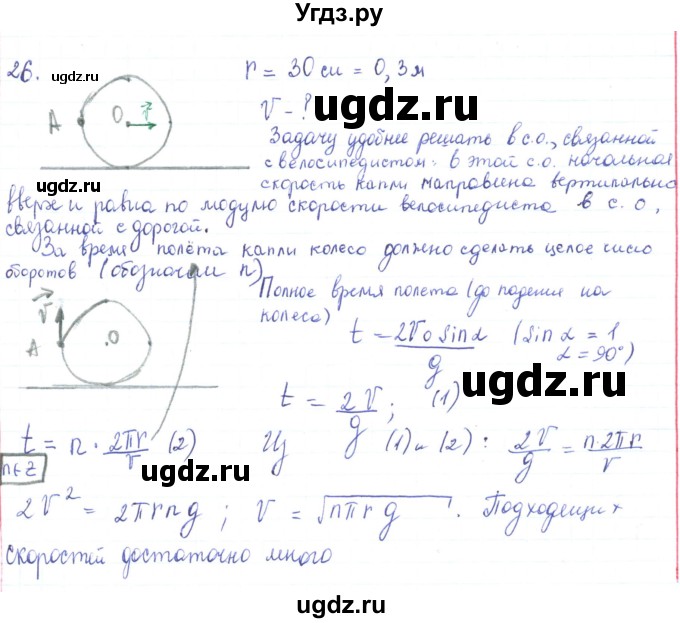 Угдз.ру
26.
ugdz.ru
r = 30 см = 0,3 м
V - ?
ugdz.ru
A O r
Задачу удобнее решать в с.о., связанной
с велосипедистом: в этой с.о. начальная
скорость капли направлена вертикально
вверх и равна по модулю скорости велосипедиста в с.о,
связанной с дорогой.
За время полёта капли колесо должно сделать целое число
оборотов (обозначим n)
ugdz.ru
Полное время полета (до падения на
колеса)
V
A O
t = 2V₀ sinα / g (sin α = 1
α = 90°)
ugdz.ru
t = 2V / g ; (1)
t = n · 2πr / V (2)
n ∈ Z
ugdz.ru
Из (1) и (2) : 2V / g = n·2πr / V
2V² = 2πrng ; V = √nπrg . Подходящих
скоростей достаточно много
ugdz.ru
ugdz.ru